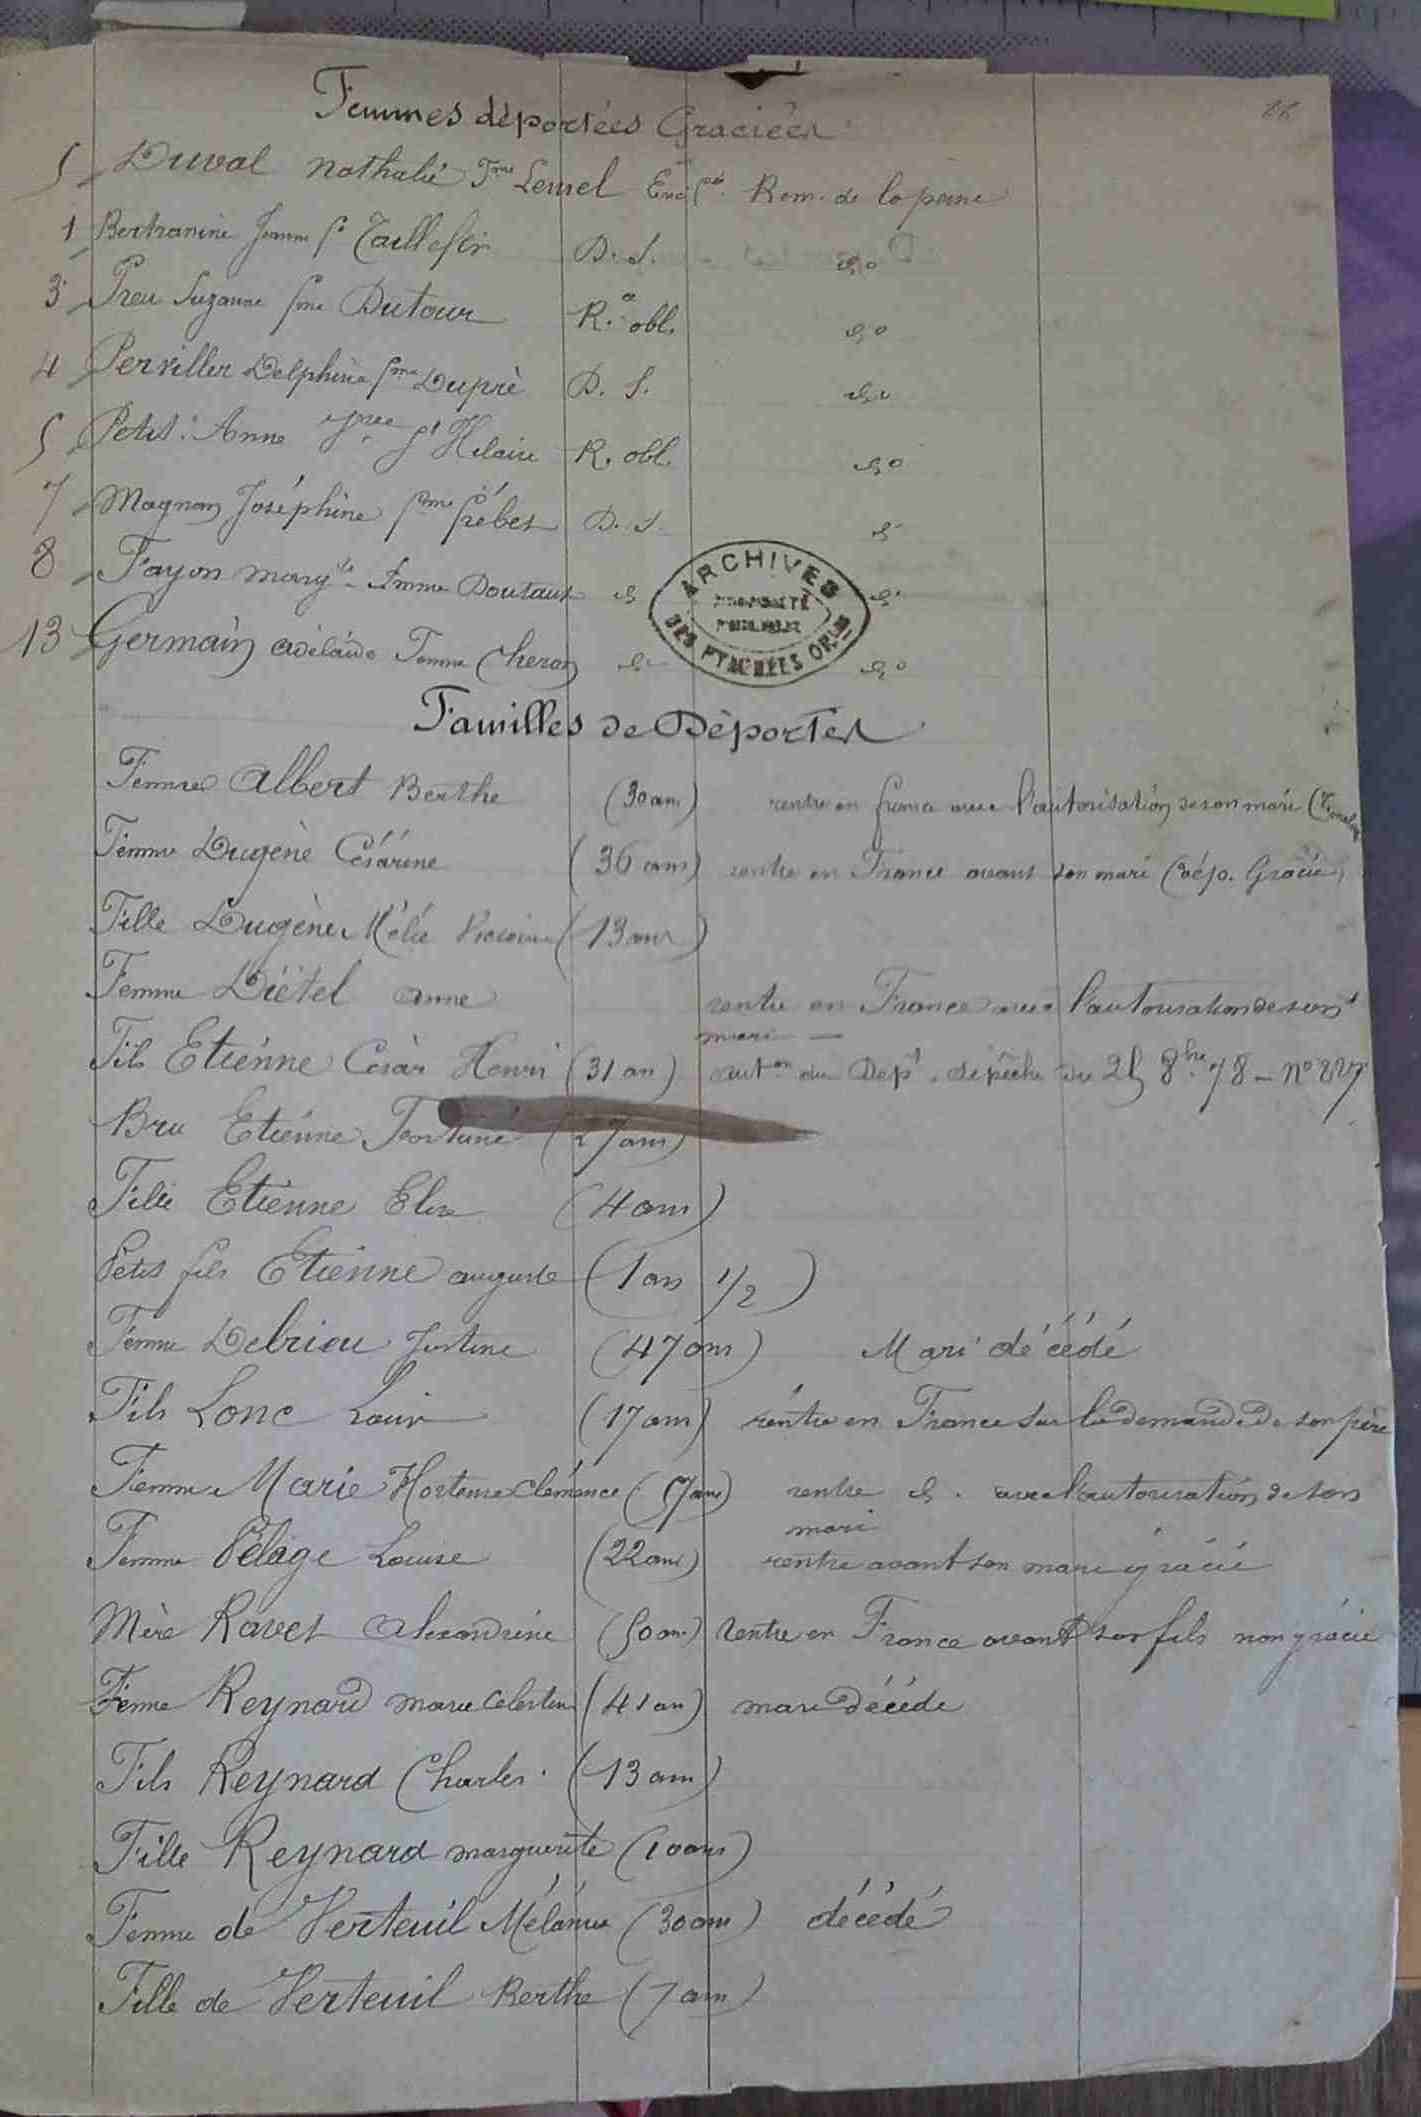 Femmes déportées Graciées
5 Duval Nathalie Fme Lemel Rem. de la peine
1 Bertranine Jeanne fe Taillefer D. S. do
3 Preu Suzanne fme Dutour R. obl. do
4 Perviller Delphine fme Dupré D. S. do
5 Petit Anne St Hilaire R. obl. do
7 Magnan Joséphine fme D. S. do
8 Fayon Margte femme Doutaut do do
13 Germain Adélaïde Femme Cheron do do
ARCHIVES
PROPRIÉTÉ
PUBLIQUE
DES PYRÉNÉES ORles
Familles de Déportés
Femme Albert Berthe (30 ans) rentre en france avec l'autorisation de son mari
Femme Dugène Césárine (36 ans) rentre en France avant son mari (dép. Gracié)
Fille Dugène Mélie (13 ans)
Femme Diétel Anne rentre en France avec l'autorisation de son
mari
Fils Etiénne César Henri (31 an) auton du Dept dépêche du 25 8bre 78 - No 227
Bru Etiénne Fortune (27 ans)
Fille Etiénne Elisa (4 ans)
Petit fils Etiénne auguste (1 an 1/2)
Femme Debriou Justine (47 ans) Mari décédé
Fils Lonc Louis (17 ans) rentre en France sur la demande de son père
Femme Marie Hortense Clémence rentre d. avec l'autorisation de son
mari
Femme Pélage Louise (22 ans) rentre avant son mari gracié
Mère Ravet Alexandrine (50 an) Rentre en France avant son fils non gracié
Femme Reynard marie Celestine (41 an) mari décédé
Fils Reynard Charles (13 ans)
Fille Reynard marguerite (10 ans)
Femme de Verteuil Mélanie (30 ans) décédé
Fille de Verteuil Berthe (7 ans)